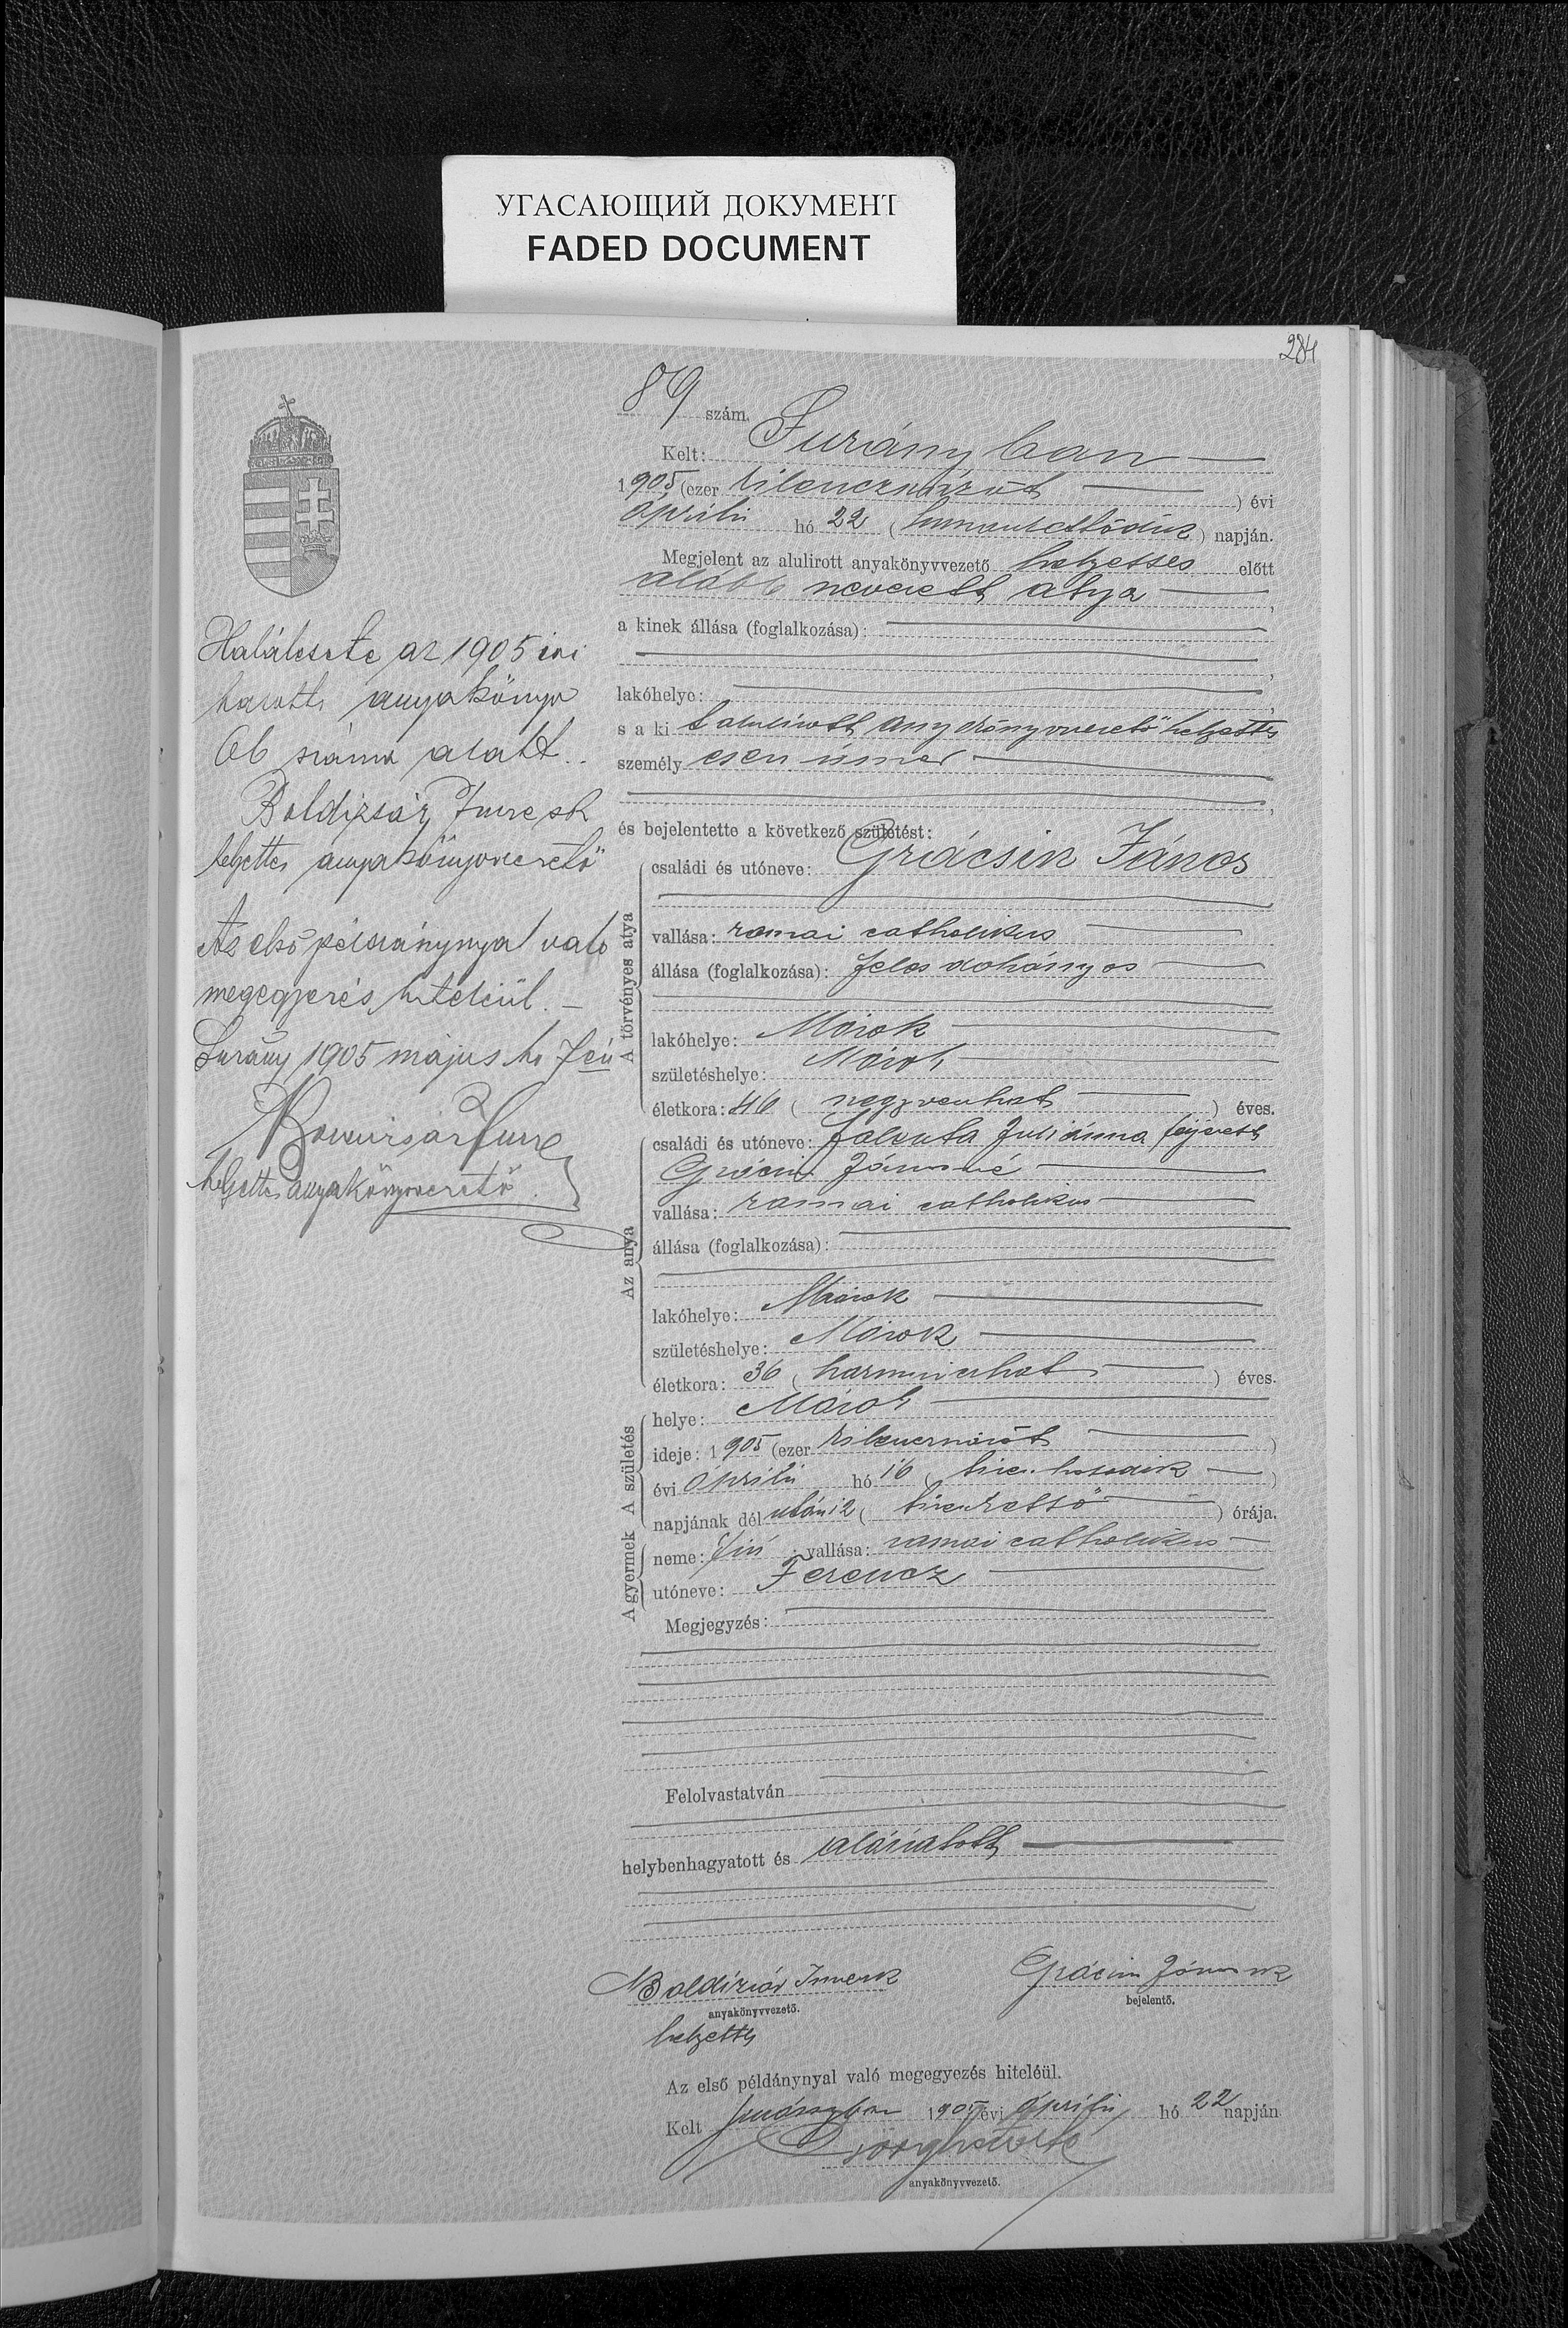 УГАСАЮЩИЙ ДОКУМЕНТ
FADED DOCUMENT
284
89 szám.
Kelt: Surányban
1905 (ezer kilenczszázöt ) évi
április hó 22 (huszonkettődik) napján.
Megjelent az alulirott anyakönyvvezető helyettes előtt
alább nevezett atya,
a kinek állása (foglalkozása):
lakóhelye:
s a ki t alulirott anyakönyvvezető helyettes
személyesen ismer
és bejelentette a következő születést:
A törvényes atya
családi és utóneve: Grácsin János
vallása: romai catholikus
állása (foglalkozása): feles dohányos
lakóhelye: Márok
születéshelye: Márok
életkora: 46 ( negyvenhat ) éves.
Az anya
családi és utóneve: Juliánna férjezett
Grácsin Jánosné
vallása: romai catholikus
állása (foglalkozása):
lakóhelye: Márok
születéshelye: Márok
életkora: 36 ( harminczhat ) éves.
A születés
helye: Márok
ideje: 1905 (ezer kilenczszázöt )
évi április hó 16 ( tizenhatodik )
napjának dél utáni 2 ( ) órája.
A gyermek
neme: fiú; vallása: romai catholikus
utóneve: Ferencz
Megjegyzés:
Felolvastatván
helybenhagyatott és aláíratott
Boldizsár Imre sk Grácsin János sk
anyakönyvvezető. bejelentő.
helyettes
Az első példánynyal való megegyezés hiteléül.
Kelt Surányban 1905 évi április hó 22 napján
anyakönyvvezető.
Halálesete az 1905 évi
halotti anyakönyv
száma alatt.
Boldizsár Imre sk
helyettes anyakönyvvezető
Az első példánynyal való
megegyezés hiteléül. –
Surány 1905 május hó 7én
Boldizsár Imre
helyettes anyakönyvvezető.